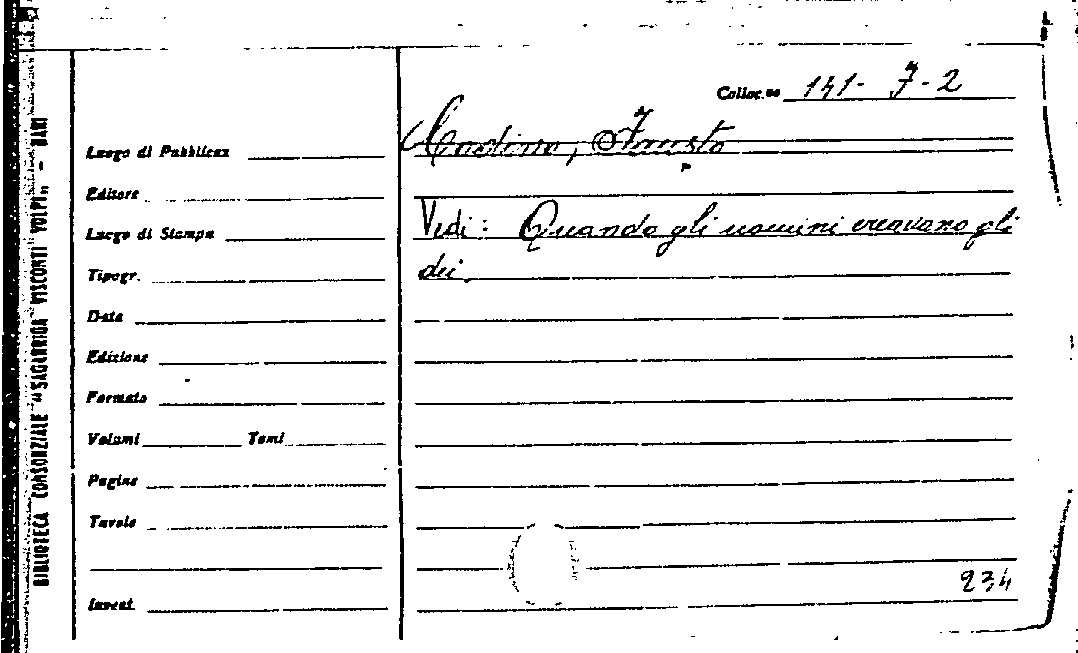 BIBLIOTECA CONSORZIALE "SAGARRIGA VISCONTI VOLPI„ - BARI
Colloc.ne 141- 7-2
Luogo di Pubblicaz
Codino, Fausto
Editore
Luogo di Stampa
Vedi: Quando gli uomini creavano gli
Tipogr.
dei.
Data
Edizione
Formato
Volumi Tomi
Pagine
Tavole
234
Invent.